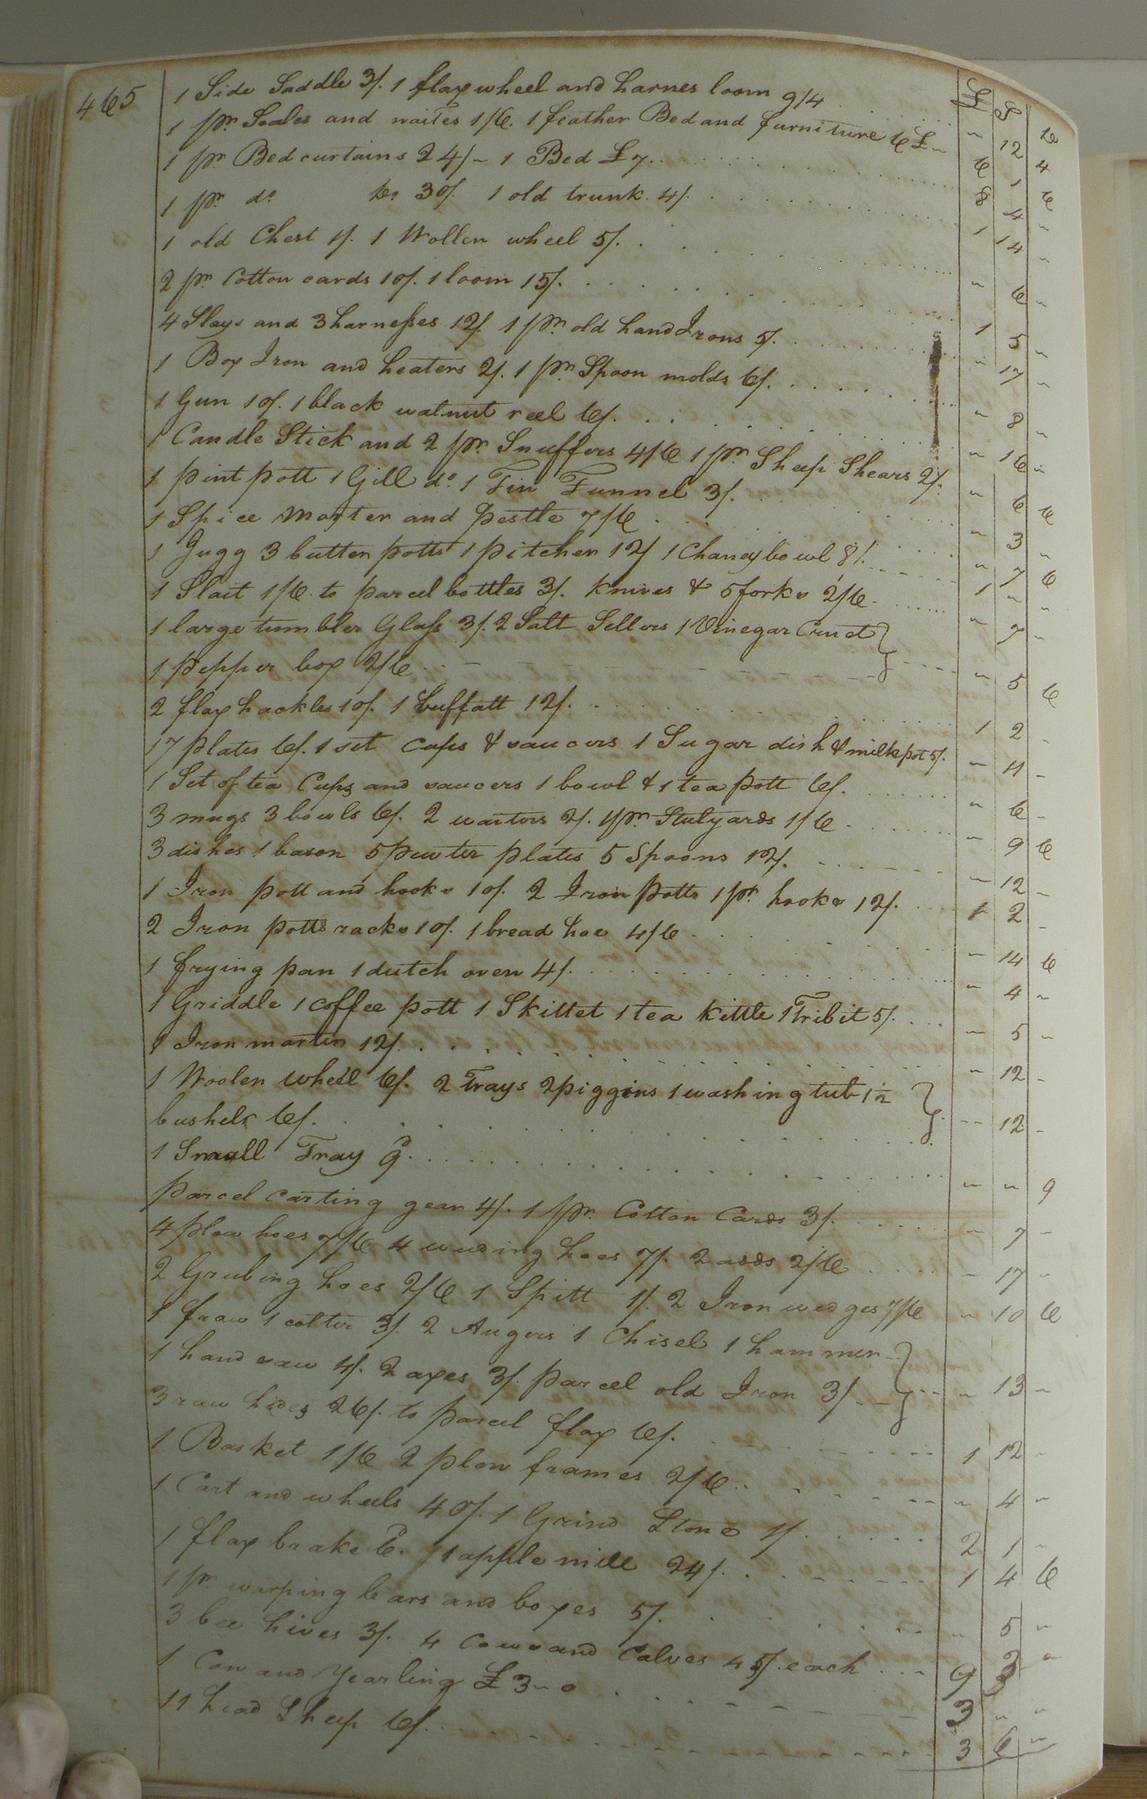 465 £ S D
1 Side Saddle 3/. 1 flax wheel and harnes loom 9/4 - 12 4
1 pr Scales and waites 1/6. 1 feather Bed and furniture 6£ - 6 1 6
1 pr Bed curtains 24/- 1 Bed £7 8 4 -
1 pr do Do 30/. 1 old trunk 4/. 1 14 -
1 old Chest 1/. 1 Wollen wheel 5/. - 6 -
2 pr Cotton cards 10/. 1 loom 15/. 1 5 -
4 Slays and 3 harnesses 12/ 1 pr old hand Irons 5/. - 17 -
1 Box Iron and heaters 2/. 1 pr Spoon molds 6/. - 8 -
1 Gun 10/. 1 black walnut reel 6/. - 16 -
1 Candle Stick and 2 pr Snuffers 4/6 1 pr Sheep Shears 2/. - 6 6
1 pint pott 1 Gill do 1 Tin Funnel 3/. - 3 -
1 Spice Morter and pestle 7/6 - 7 6
1 Jugg 3 butter potts 1 pitcher 12/ 1 Chaney bowl 8/. 1 - -
1 Slait 1/6 to parcel bottles 3/. Knives & 5 forks 2/6 - 7 -
1 large tumbler Glass 3/. 2 Salt Sellers 1 Vinegar Cruet }
1 pepper box 2/6 - 5 6
2 flax hackles 10/. 1 buffatt 12/. 1 2 -
17 plates 6/. 1 set Cups & saucers 1 Sugar dish & milk pot 5/. - 11 -
1 Set of tea Cups and saucers 1 bowl & 1 tea pott 6/. - 6 -
3 mugs 3 bowls 6/. 2 waiters 2/. 1 pr Stulyards 1/6 - 9 6
3 dishes 1 bason 5 pewter plates 5 Spoons 12/. - 12 -
1 Iron pott and hooks 10/. 2 Iron potts 1 pr hooks 12/. 1 2 -
2 Iron potts racks 10/. 1 bread hoe 4/6 - 14 6
1 frying pan 1 dutch oven 4/. - 4 -
1 Griddle 1 coffee pott 1 Skillet 1 tea kittle 1 Tribit 5/. - 5 -
1 Iron martin 12/. - 12 -
1 Woolen wheel 6/. 2 Trays 2 piggins 1 washing tub 1 1/2 }
bushels 6/. - 12 -
1 Small Tray 9D - - 9
parcel carting gear 4/. 1 pr Cotton Cards 3/. - 7 -
4 plow hoes 7/6 4 weeding hoes 7/. 2 adds 2/6 - 17 -
2 Grubing hoes 2/6 1 Spitt 1/. 2 Iron wedges 7/6 - 10 6
1 fraw 1 colter 3/. 2 Augers 1 Chisel 1 hammer }
1 hand saw 4/. 2 axes 3/. parcel old Iron 3/ - 13 -
3 raw hides 26/. to parcel flax 6/. 1 12 -
1 Basket 1/6 2 plow frames 2/6 - 4 -
1 Cart and wheels 40/. 1 Grind Stone 1/. 2 1 -
1 flax brake 6D. 1 apple mill 24/. 1 4 6
1 pr warping bars and boxes 5/. - 5 -
3 bee hives 3/. 4 Cows and Calves 45/. each 9 3 -
1 Cow and Yearling £3-0 3 - -
11 head Sheep 6/. 3 6 -